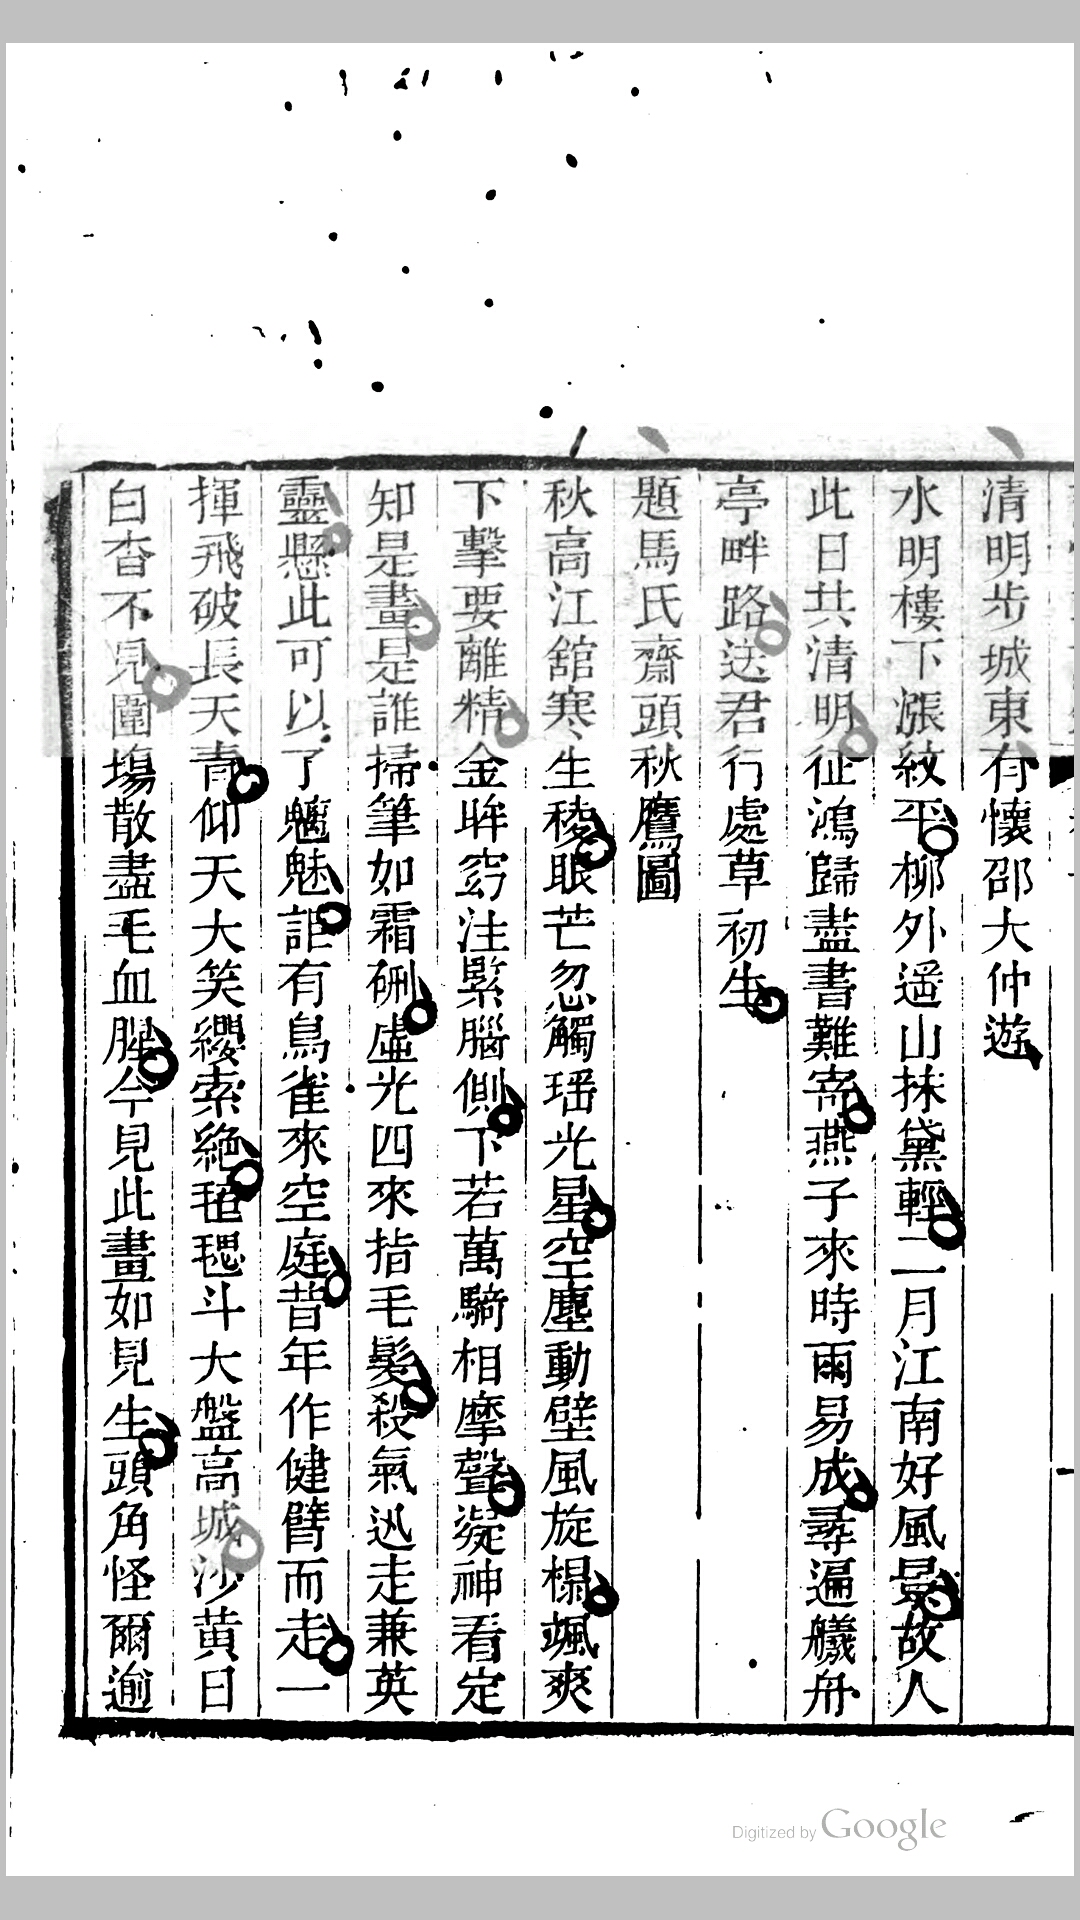 清明步城東有懷邵大仲遊
水明樓下漲紋平柳外遥山抹黛輕二月江南好風景故人
此日共清明征鴻歸盡書難寄燕子來時雨易成尋遍艤舟
亭畔路送君行處草初生
題馬氏齋頭秋鷹圖
秋高江舘寒生稜眼芒忽觸瑶光星空塵動壁風旋榻颯爽
下擊要離精金眸窈注緊腦側下若萬騎相摩聲凝神看定
知是畫是誰掃筆如霜硎虛光四來指毛髮殺氣迅走兼英
靈懸此可以了魑魅詎有鳥雀來空庭昔年作健臂而走一
揮飛破長天青仰天大笑纓索絶毰毸斗大盤高城沙黄日
白杳不見圍塲散盡毛血腥今見此畫如見生頭角怪爾逾
Digitized by Google